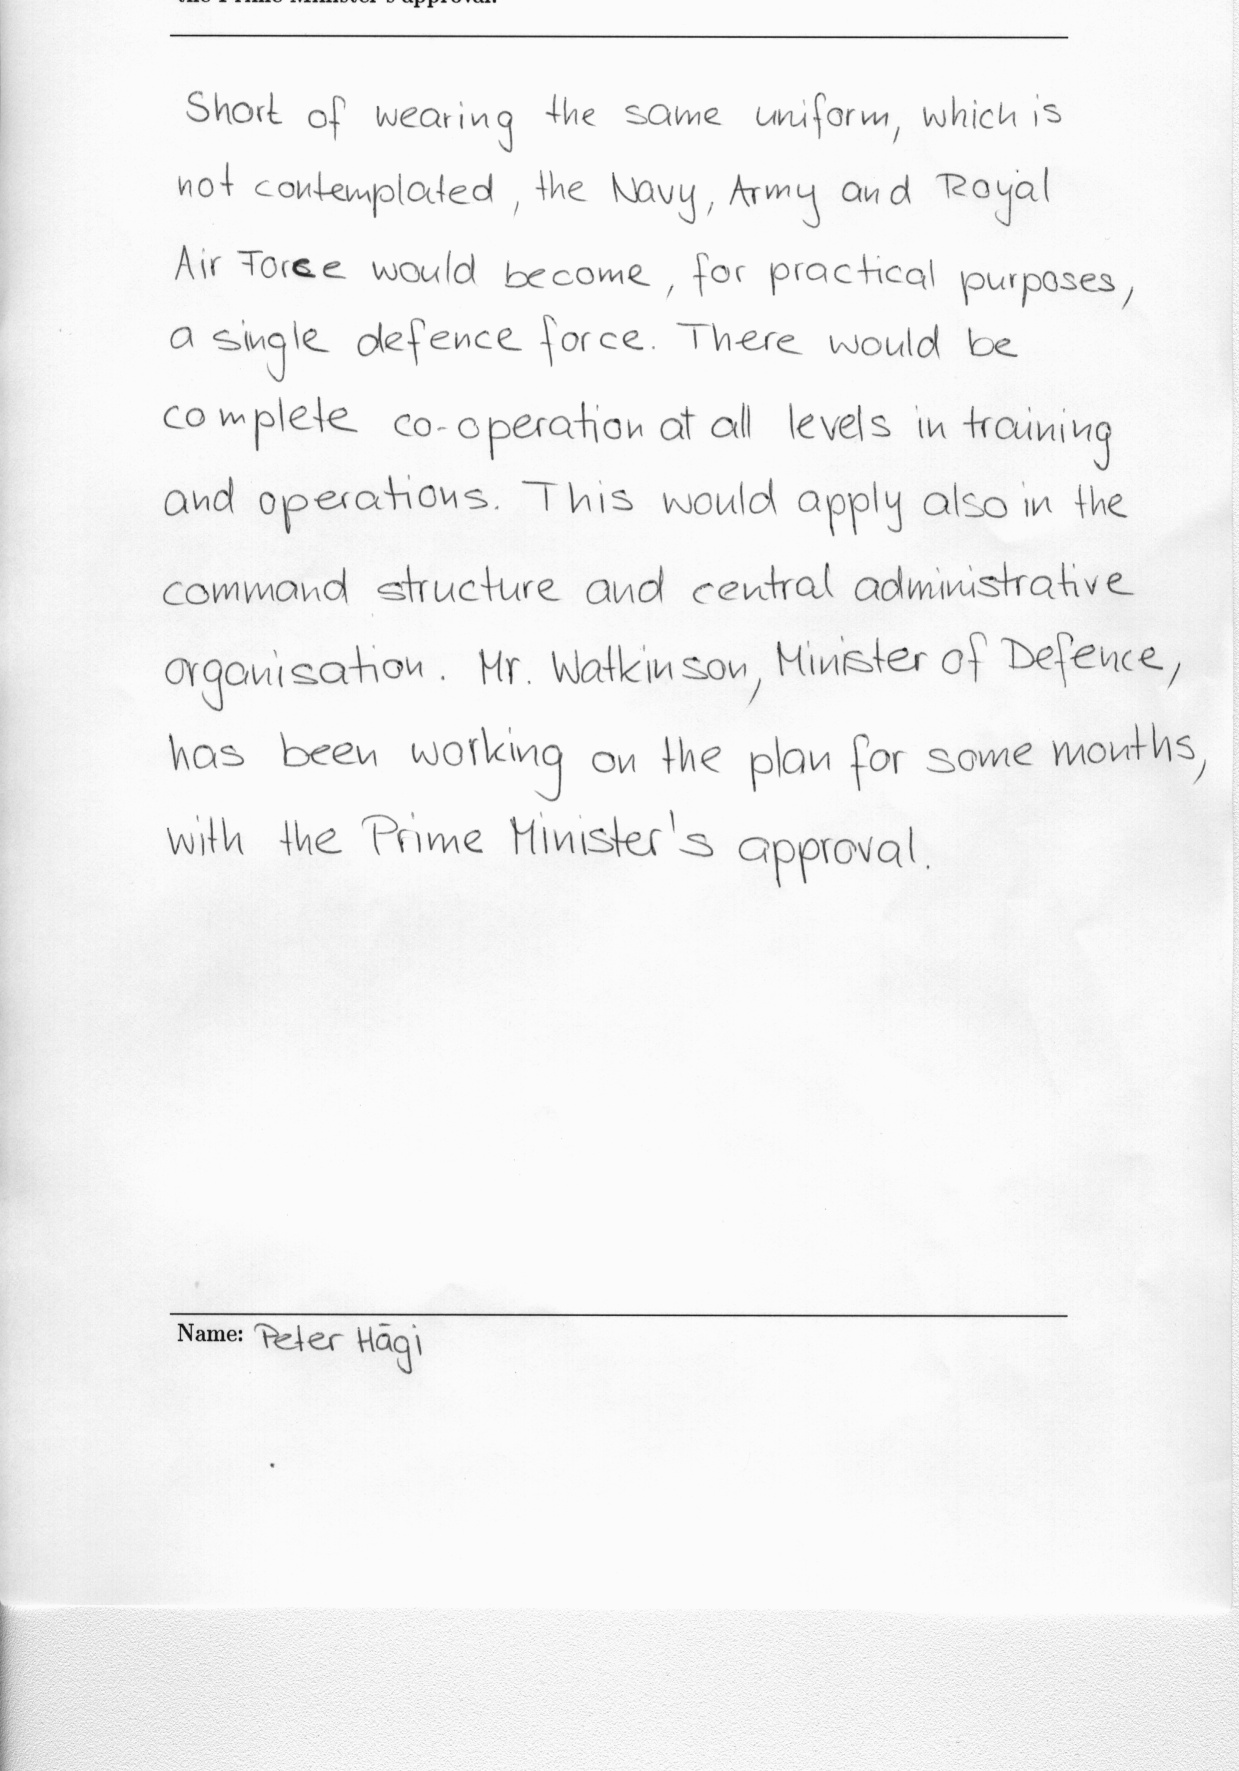 the Prime Minister's approval.
Short of wearing the same uniform, which is
not contemplated, the Navy, Army and Royal
Air Force would become, for practical purposes,
a single defence force. There would be
complete co-operation at all levels in training
and operations. This would apply also in the
command structure and central administrative
organisation. Mr. Watkinson, Minister of Defence,
has been working on the plan for some months,
with the Prime Minister's approval.
Name: Peter Hāgi